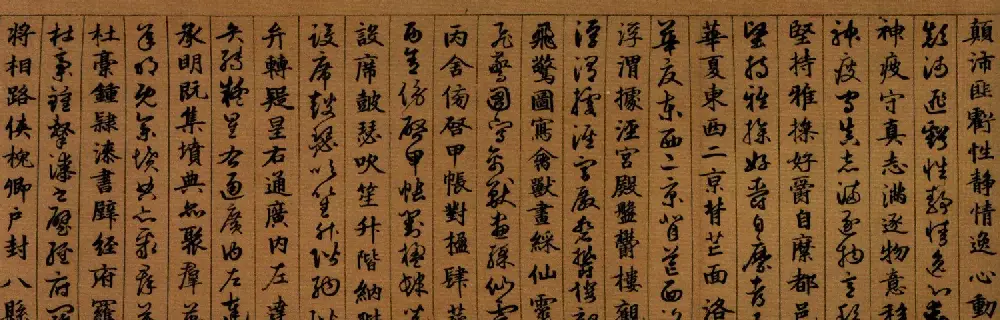 顛沛匪虧性靜情逸心動
顛沛匪虧性靜情逸心動
神疲守真志滿逐物意移
神疲守真志滿逐物意移
堅持雅操好爵自縻都邑
堅持雅操好爵自縻都
華夏東西二京背芒面洛
華夏東西二京背芒面洛
浮渭據涇宮殿盤鬱樓觀
浮渭據涇宮殿盤鬱樓觀
飛驚圖寫禽獸畫綵仙靈
飛驚圖寫禽獸畫綵仙靈
丙舍傍啓甲帳對楹肆筵
丙舍傍啓甲帳對楹肆筵
設席鼓瑟吹笙升階納陛
設席鼓瑟吹笙升階納陛
弁轉疑星右通廣內左達
弁轉疑星右通廣內左達
承明既集墳典亦聚羣英
承明既集墳典亦聚羣英
杜稾鍾隸漆書壁經府羅
杜稾鍾隸漆書壁經府羅
將相路俠槐卿戶封八縣